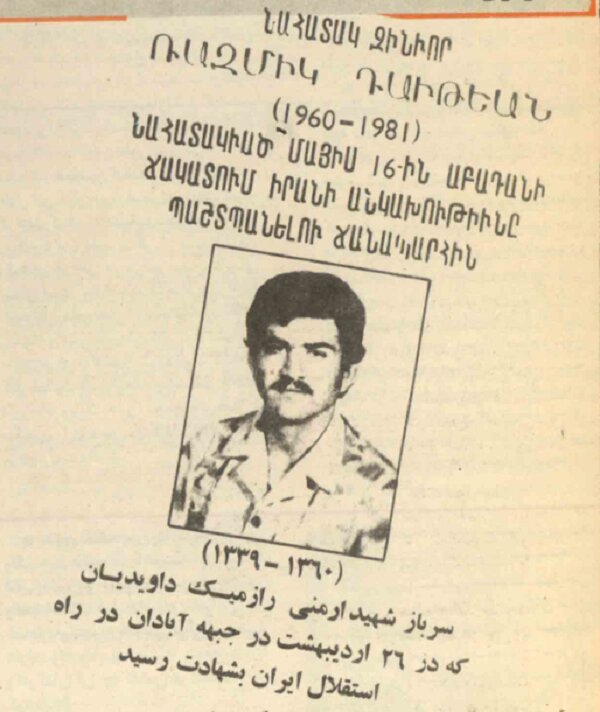 ՆԱՀԱՏԱԿ ԶԻՆԻՈՐ
ՌԱԶՄԻԿ ԴԱՒԹԵԱՆ
(1960-1981)
ՆԱՀԱՏԱԿԻԱԾ՝ ՄԱՅԻՍ 16-ԻՆ ԱԲԱԴԱՆԻ
ՃԱԿԱՏՈՒՄ ԻՐԱՆԻ ԱՆԿԱԽՈՒԹԻԻՆԸ
ՊԱՇՏՊԱՆԵԼՈՒ ՃԱՆԱՊԱՐՀԻՆ
(۱۳۳۹-۱۳۶۰)
سرباز شهید ارمنی رازمیک داویدیان
که در ۲۶ اردیبهشت در جبهه آبادان در راه
استقلال ایران بشهادت رسید